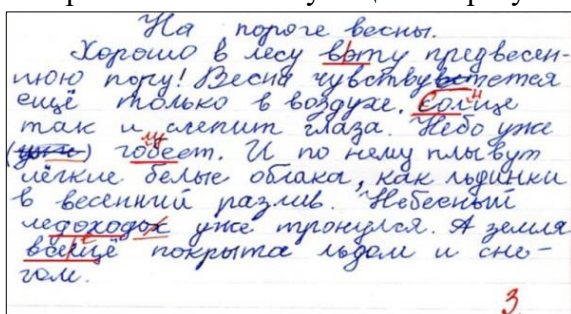 На пороге весны.
Хорошо в лесу врту предвесен-
нюю пору! Весна чувствуется
ещё только в воздухе. Солце
так и слепит глаза. Небо уже
(уже) гобеет. И по нему плывут
лёгкие белые облака, как льдинки
в весенний разлив. Небесный
ледоходох уже тронулся. А земля
всеще покрыта льдом и сне-
гом.
3